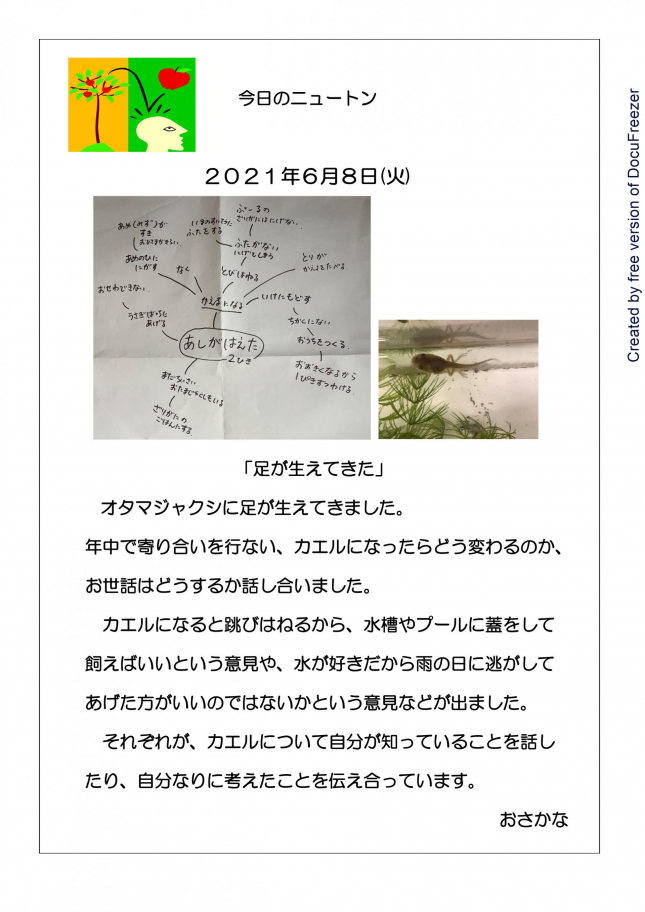 今日のニュートン
２０２１年６月８日(火)
ぷーるの
ざりがにはにげない
あめ(みず)が
すき
いまのすいそうに
ふたをする
ふたがない
にげてしまう
とりが
かえるをたべる
あめのひに
にがす
なく
とびはねる
おせわできない
かえるになる
いけにもどす
うさぎぱっちに
あげる
ちかくにない
あしがはえた
2ひき
おうちをつくる
おおきくなるから
1ぴきずつわける
まだちいさい
おたまじゃくしもいる
ざりがにの
ごはんにする
「足が生えてきた」
オタマジャクシに足が生えてきました。
年中で寄り合いを行ない、カエルになったらどう変わるのか、
お世話はどうするか話し合いました。
カエルになると跳びはねるから、水槽やプールに蓋をして
飼えばいいという意見や、水が好きだから雨の日に逃がして
あげた方がいいのではないかという意見などが出ました。
それぞれが、カエルについて自分が知っていることを話し
たり、自分なりに考えたことを伝え合っています。
おさかな
Created by free version of DocuFreezer